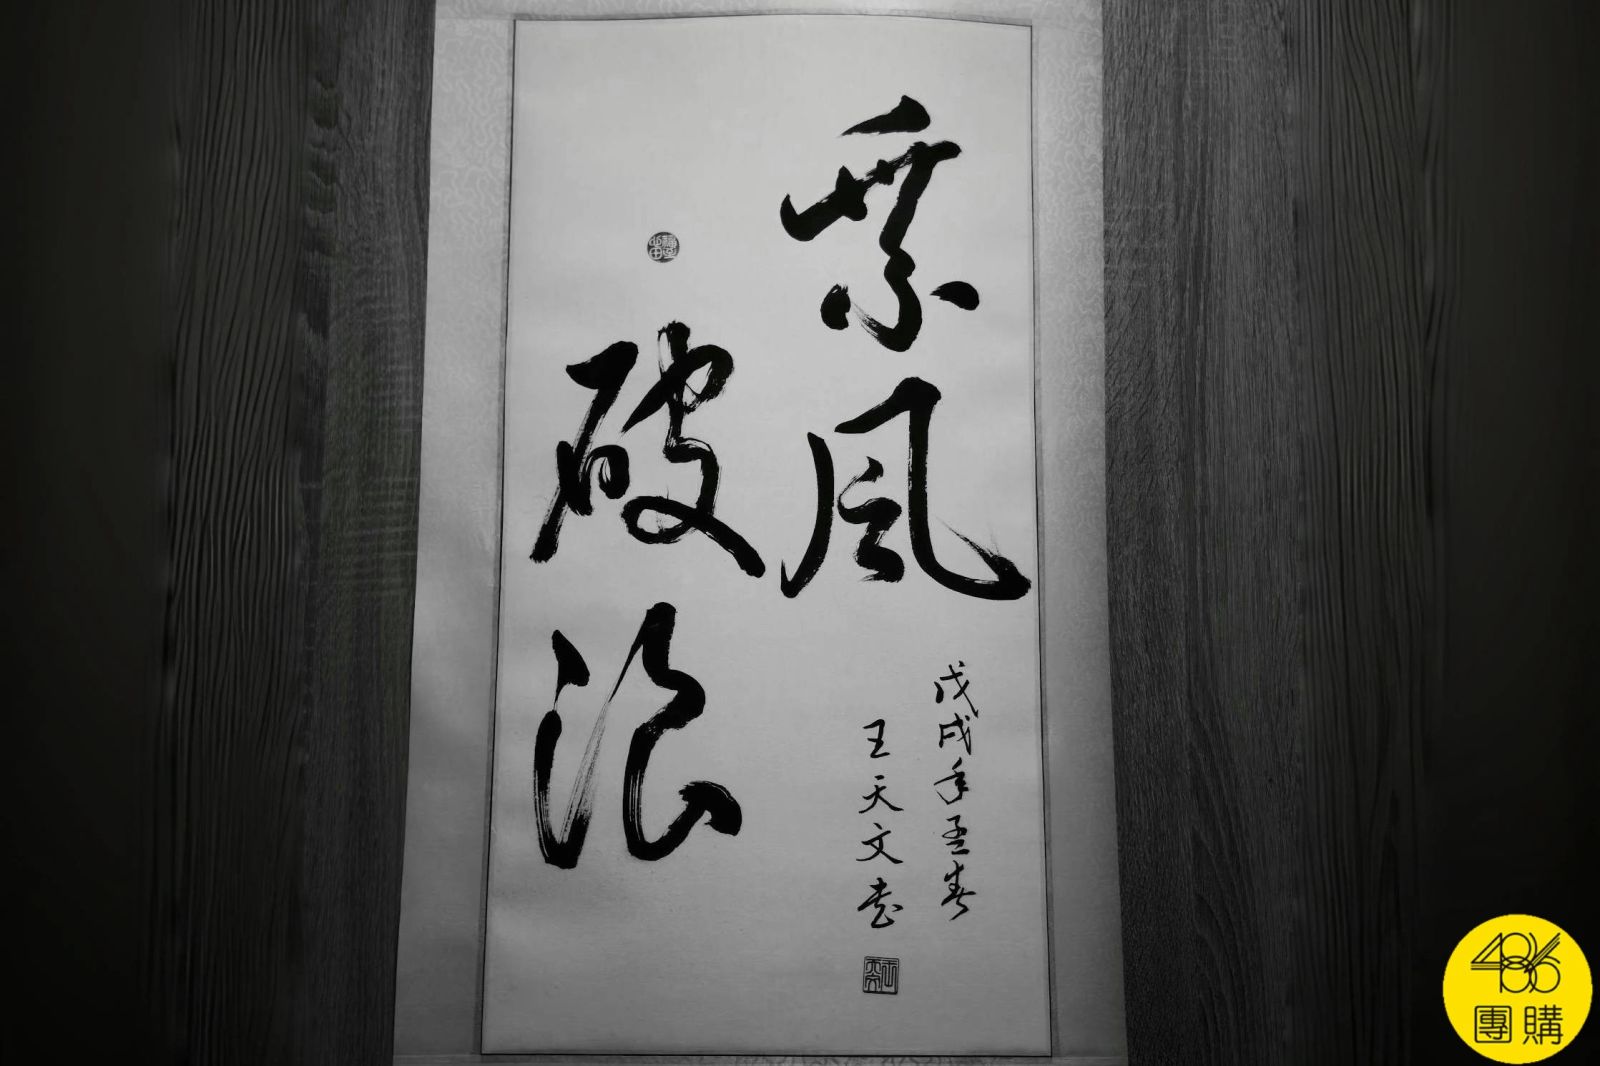 乘風
破浪
戊戌年孟春
王天文書
486
團購